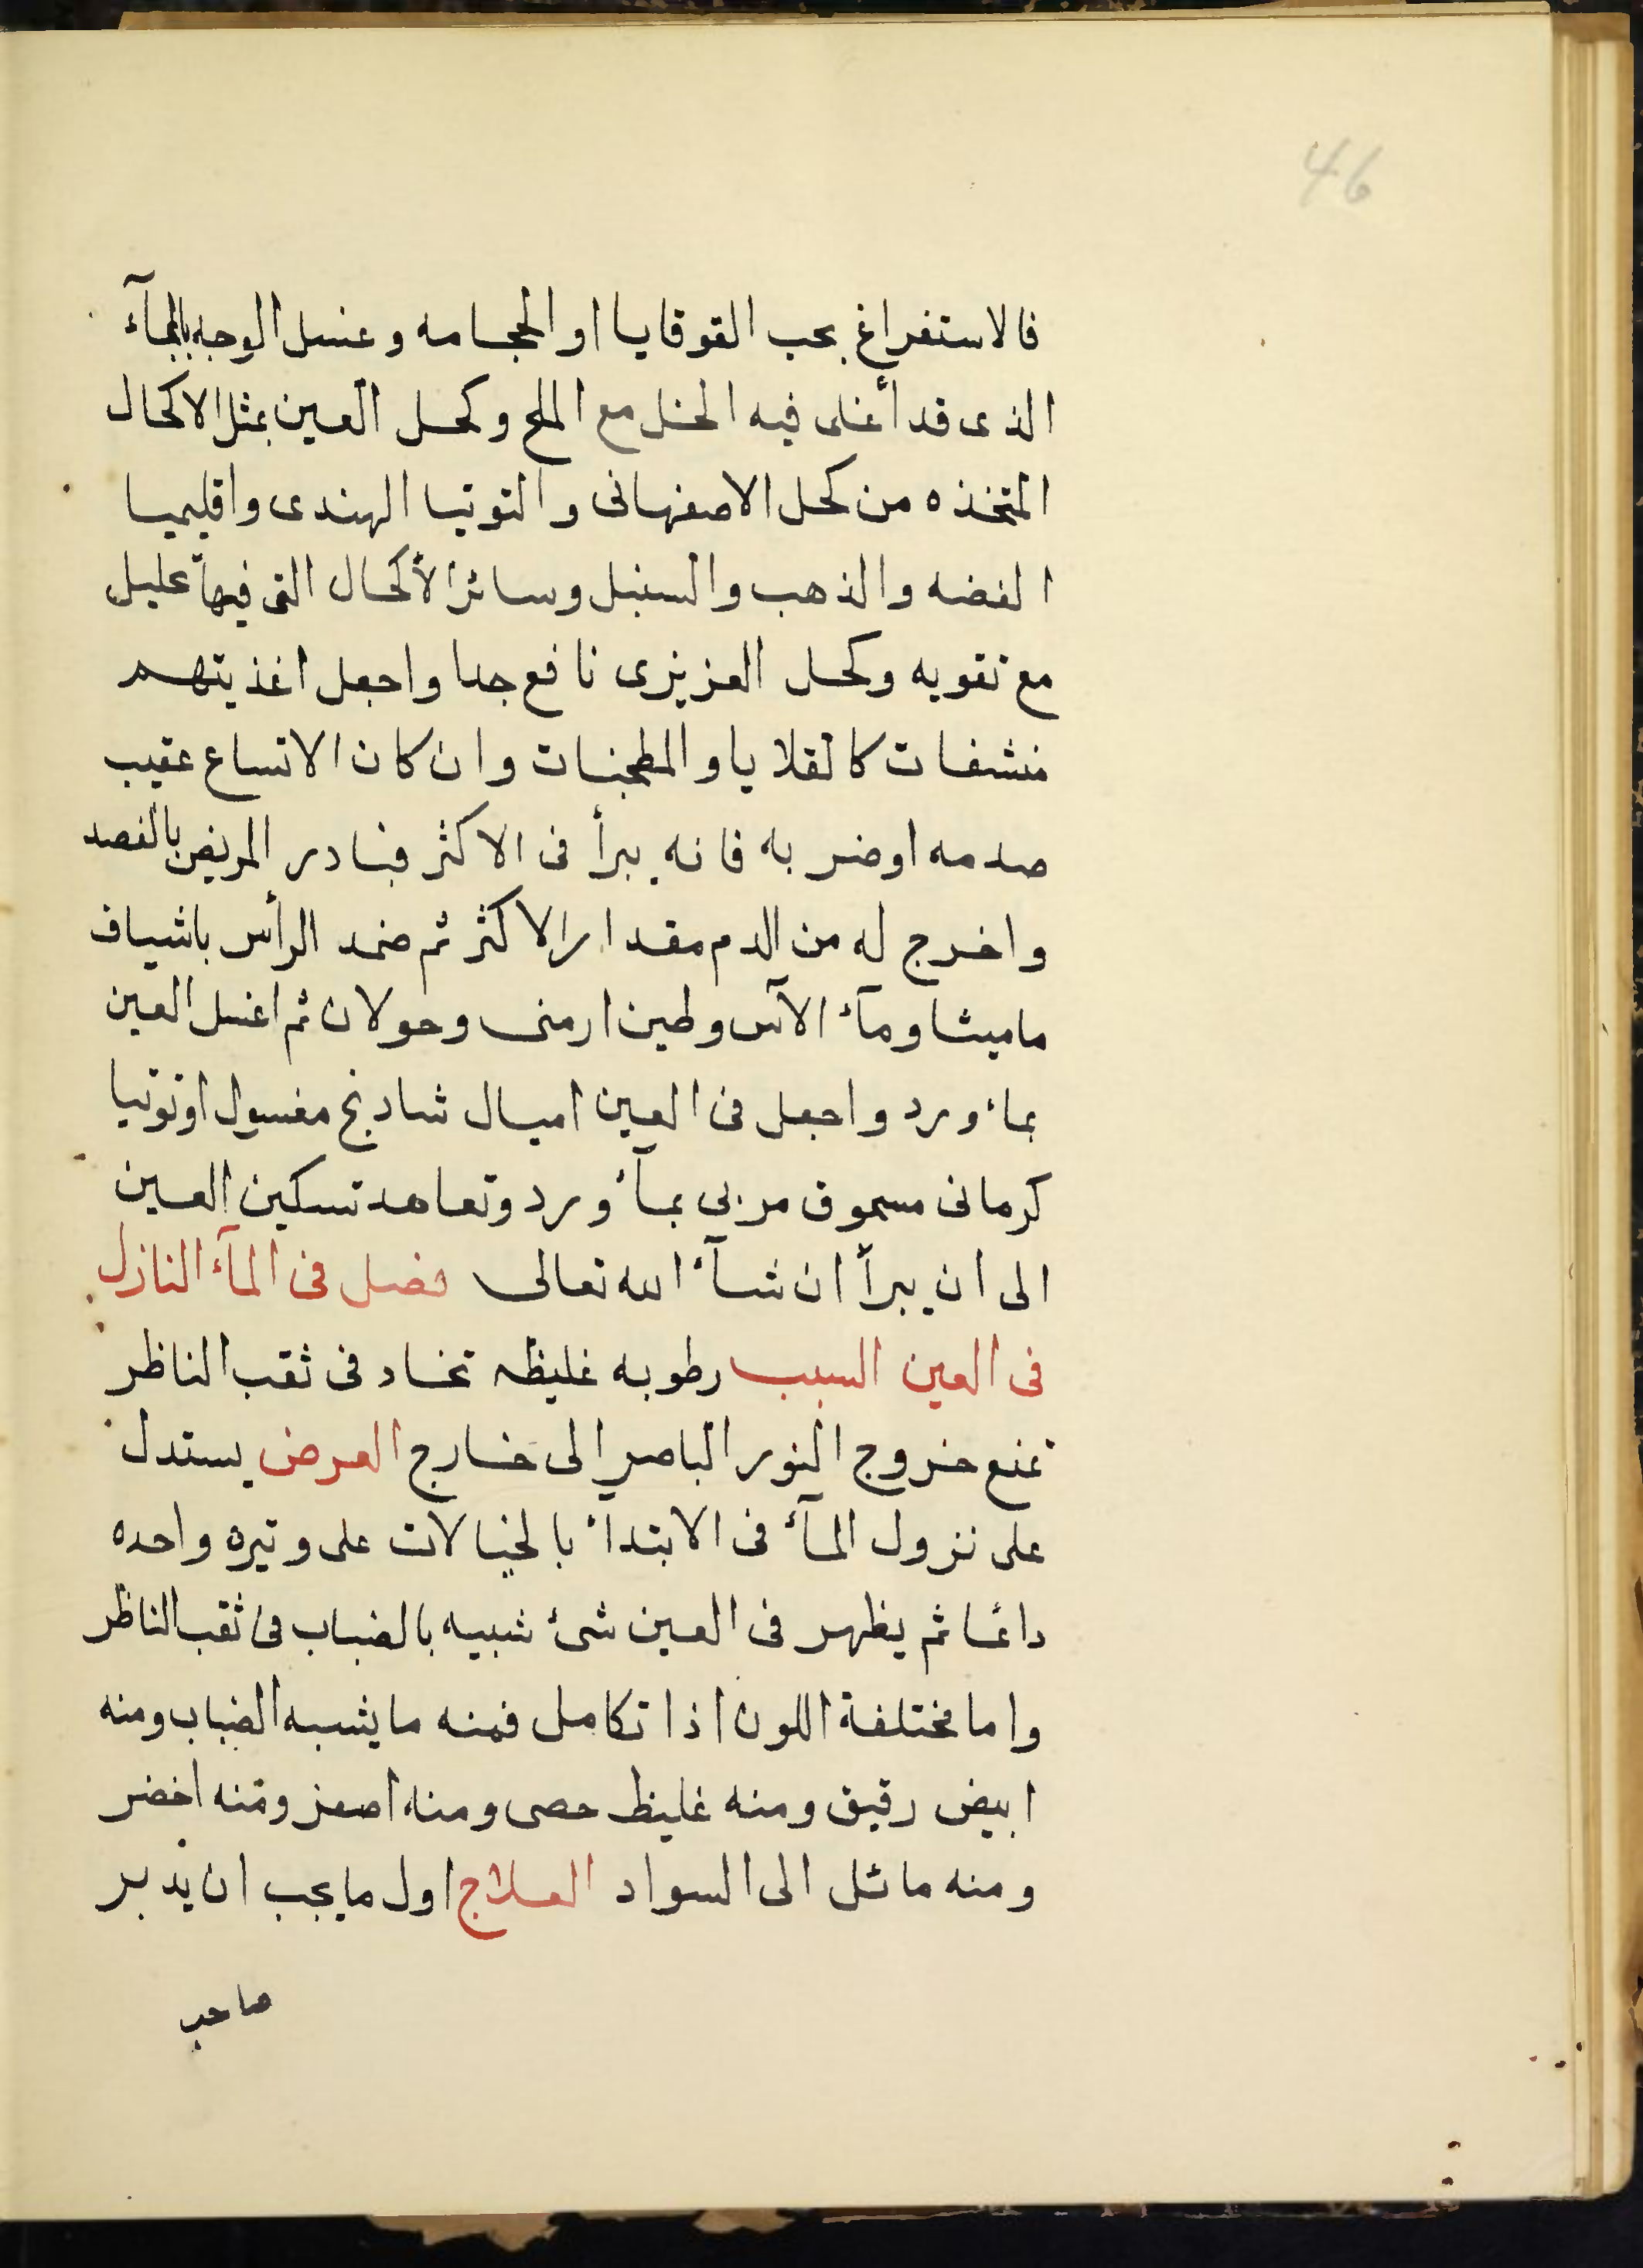 46
فالاستفراغ بحب القوقايا او الحجامه وغسل الوجه بالمآء
الذى قد أغلى فيه الخل مع الملح وكحل العين بمثل الاكحال
المتخذه من كحل الاصفهانى والتوتيا الهندى واقليميا
الفضه والذهب والسنبل وسائر الأكحال التى فيها تحليل
مع تقويه وكحل العزيزى نافع جدا واجعل اغذيتهم
منشفات كالقلايا والمطجنات وان كان الاتساع عقيب
صدمه اوضربه فانه يبرأ فى الاكثر فبادر المريض بالفصد
واخرج له من الدم مقدار الاكثر ثم ضمد الرأس باشياف
ماميثا ومآء الآس وطين ارمنى وحولان ثم اغسل العين
بماء ورد واجعل فى العين اميال شادنج مغسول اوتوتيا
كرمانى مسحوق مربى بمآء ورد وتعاهد تسكين العين
الى ان يبرأ ان شآء الله تعالى فصل فى المآء النازل
فى العين السبب رطوبه غليظه تخاد فى ثقب الناظر
تمنع خروج النور الباصر الى خارج العرض يستدل
على نزول المآء فى الابتداء بالخيالات على وتيره واحده
دائما ثم يظهر فى العين شئ شبيه بالضباب فى ثقب الناظر
واما مختلفة اللون اذا تكامل فمنه ما يشبه الضباب ومنه
ابيض رقيق ومنه غليظ حصى ومنه اصفر ومنه اخضر
ومنه مائل الى السواد العلاج اول ما يجب ان يدبر
صاحب